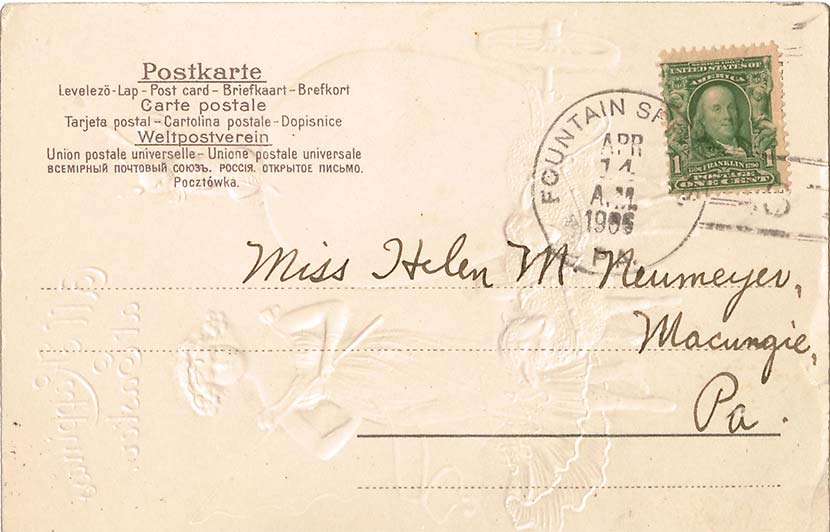 Postkarte
Levelező-Lap - Post card - Briefkaart - Brefkort
Carte postale
Tarjeta postal - Cartolina postale - Dopisnice
Weltpostverein
Union postale universelle - Unione postale universale
ВСЕМІРНЫЙ ПОЧТОВЫЙ СОЮЗЪ. РОССІЯ. ОТКРЫТОЕ ПИСЬМО.
Pocztówka.
SERIES 1902
UNITED STATES OF
AMERICA
1 FRANKLIN 1
POSTAGE
ONE CENT
FOUNTAIN SP
APR
14
A.M.
1906
PA.
Miss Helen M. Neumeyer,
Macungie,
Pa.